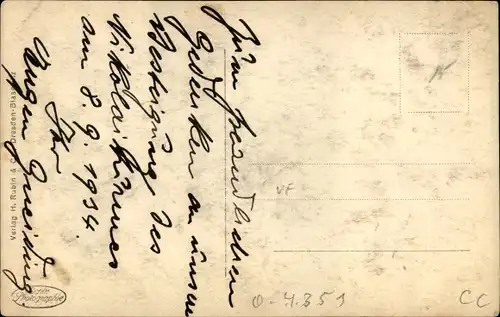 Zum freundlichen
Gedenken an unsere
Besteigung des
Nikolaiturmes
am 8.9.1934.
Ihr
Eugen
Verlag H. Rubin & Co., Dresden-Blasewitz
Echte
Photographie
VF
0-4.351
CC